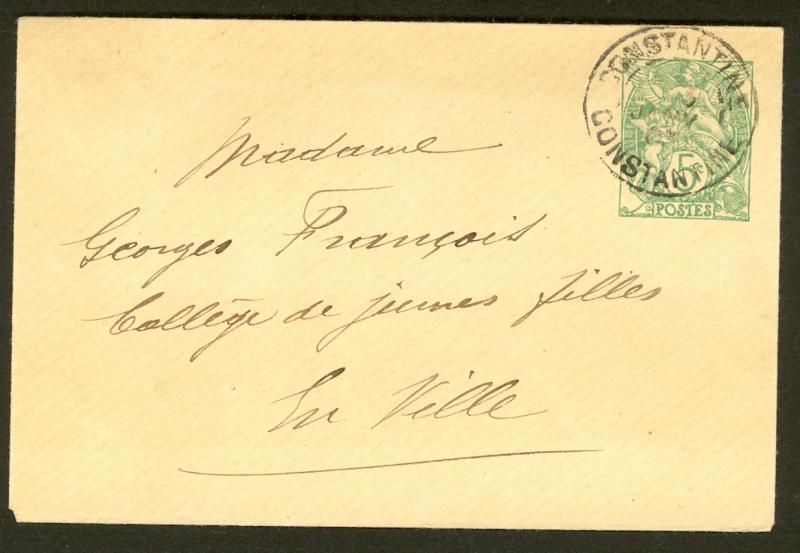 CONSTANTINE
CONSTANTINE
5
POSTES
Madame
Georges François
Collège de jeunes filles
En Ville